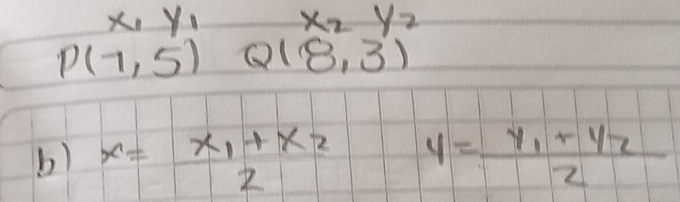 x₁ y₁ x₂ y₂
P(7,5) Q(8,3)
b) x = (x₁ + x₂)/2 y = (y₁ + y₂)/2